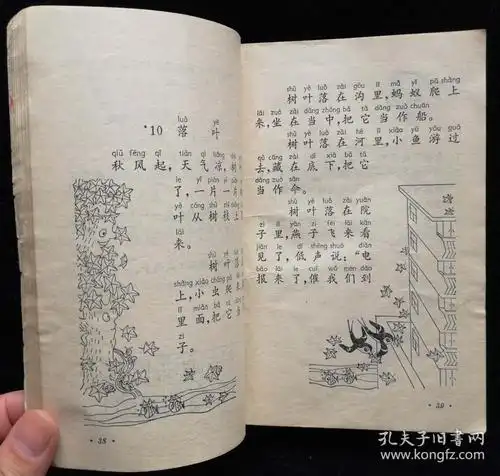 luò yè
*10 落 叶
qiū fēng qǐ tiān qì liáng
秋风起,天气凉,树
le yí piàn yí piàn
了,一片一片
yè cóng shù zhī
叶从树枝上
lái
来。
树叶落
shàng xiǎo chóng pá
上,小虫爬来
lǐ miàn bǎ tā
里面,把它当
zi
子。
·38·
shù yè luò zài gōu lǐ mǎ yǐ pá shàng
树叶落在沟里,蚂蚁爬上
lái zuò zài dāng zhōng bǎ tā dàng zuò chuán
来,坐在当中,把它当作船。
shù yè luò zài hé lǐ xiǎo yú yóu guò
树叶落在河里,小鱼游过
qù cáng zài dǐ xià bǎ tā
去,藏在底下,把它
当作伞。
shù yè luò zài yuàn
树叶落在院
zi lǐ yàn zi fēi lái kàn
子里,燕子飞来看
jiàn le dī shēng shuō diàn
见了,低声说:“电
bào lái le cuī wǒ men dào
报来了,催我们到
·39·
孔夫子旧书网
www.kongfz.com